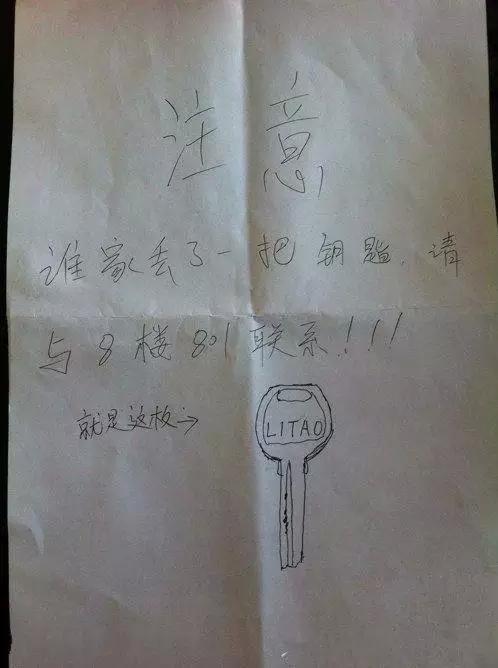 注意
谁家丢了一把钥匙，请
与8楼801联系！！！
就是这枚→
LITAO